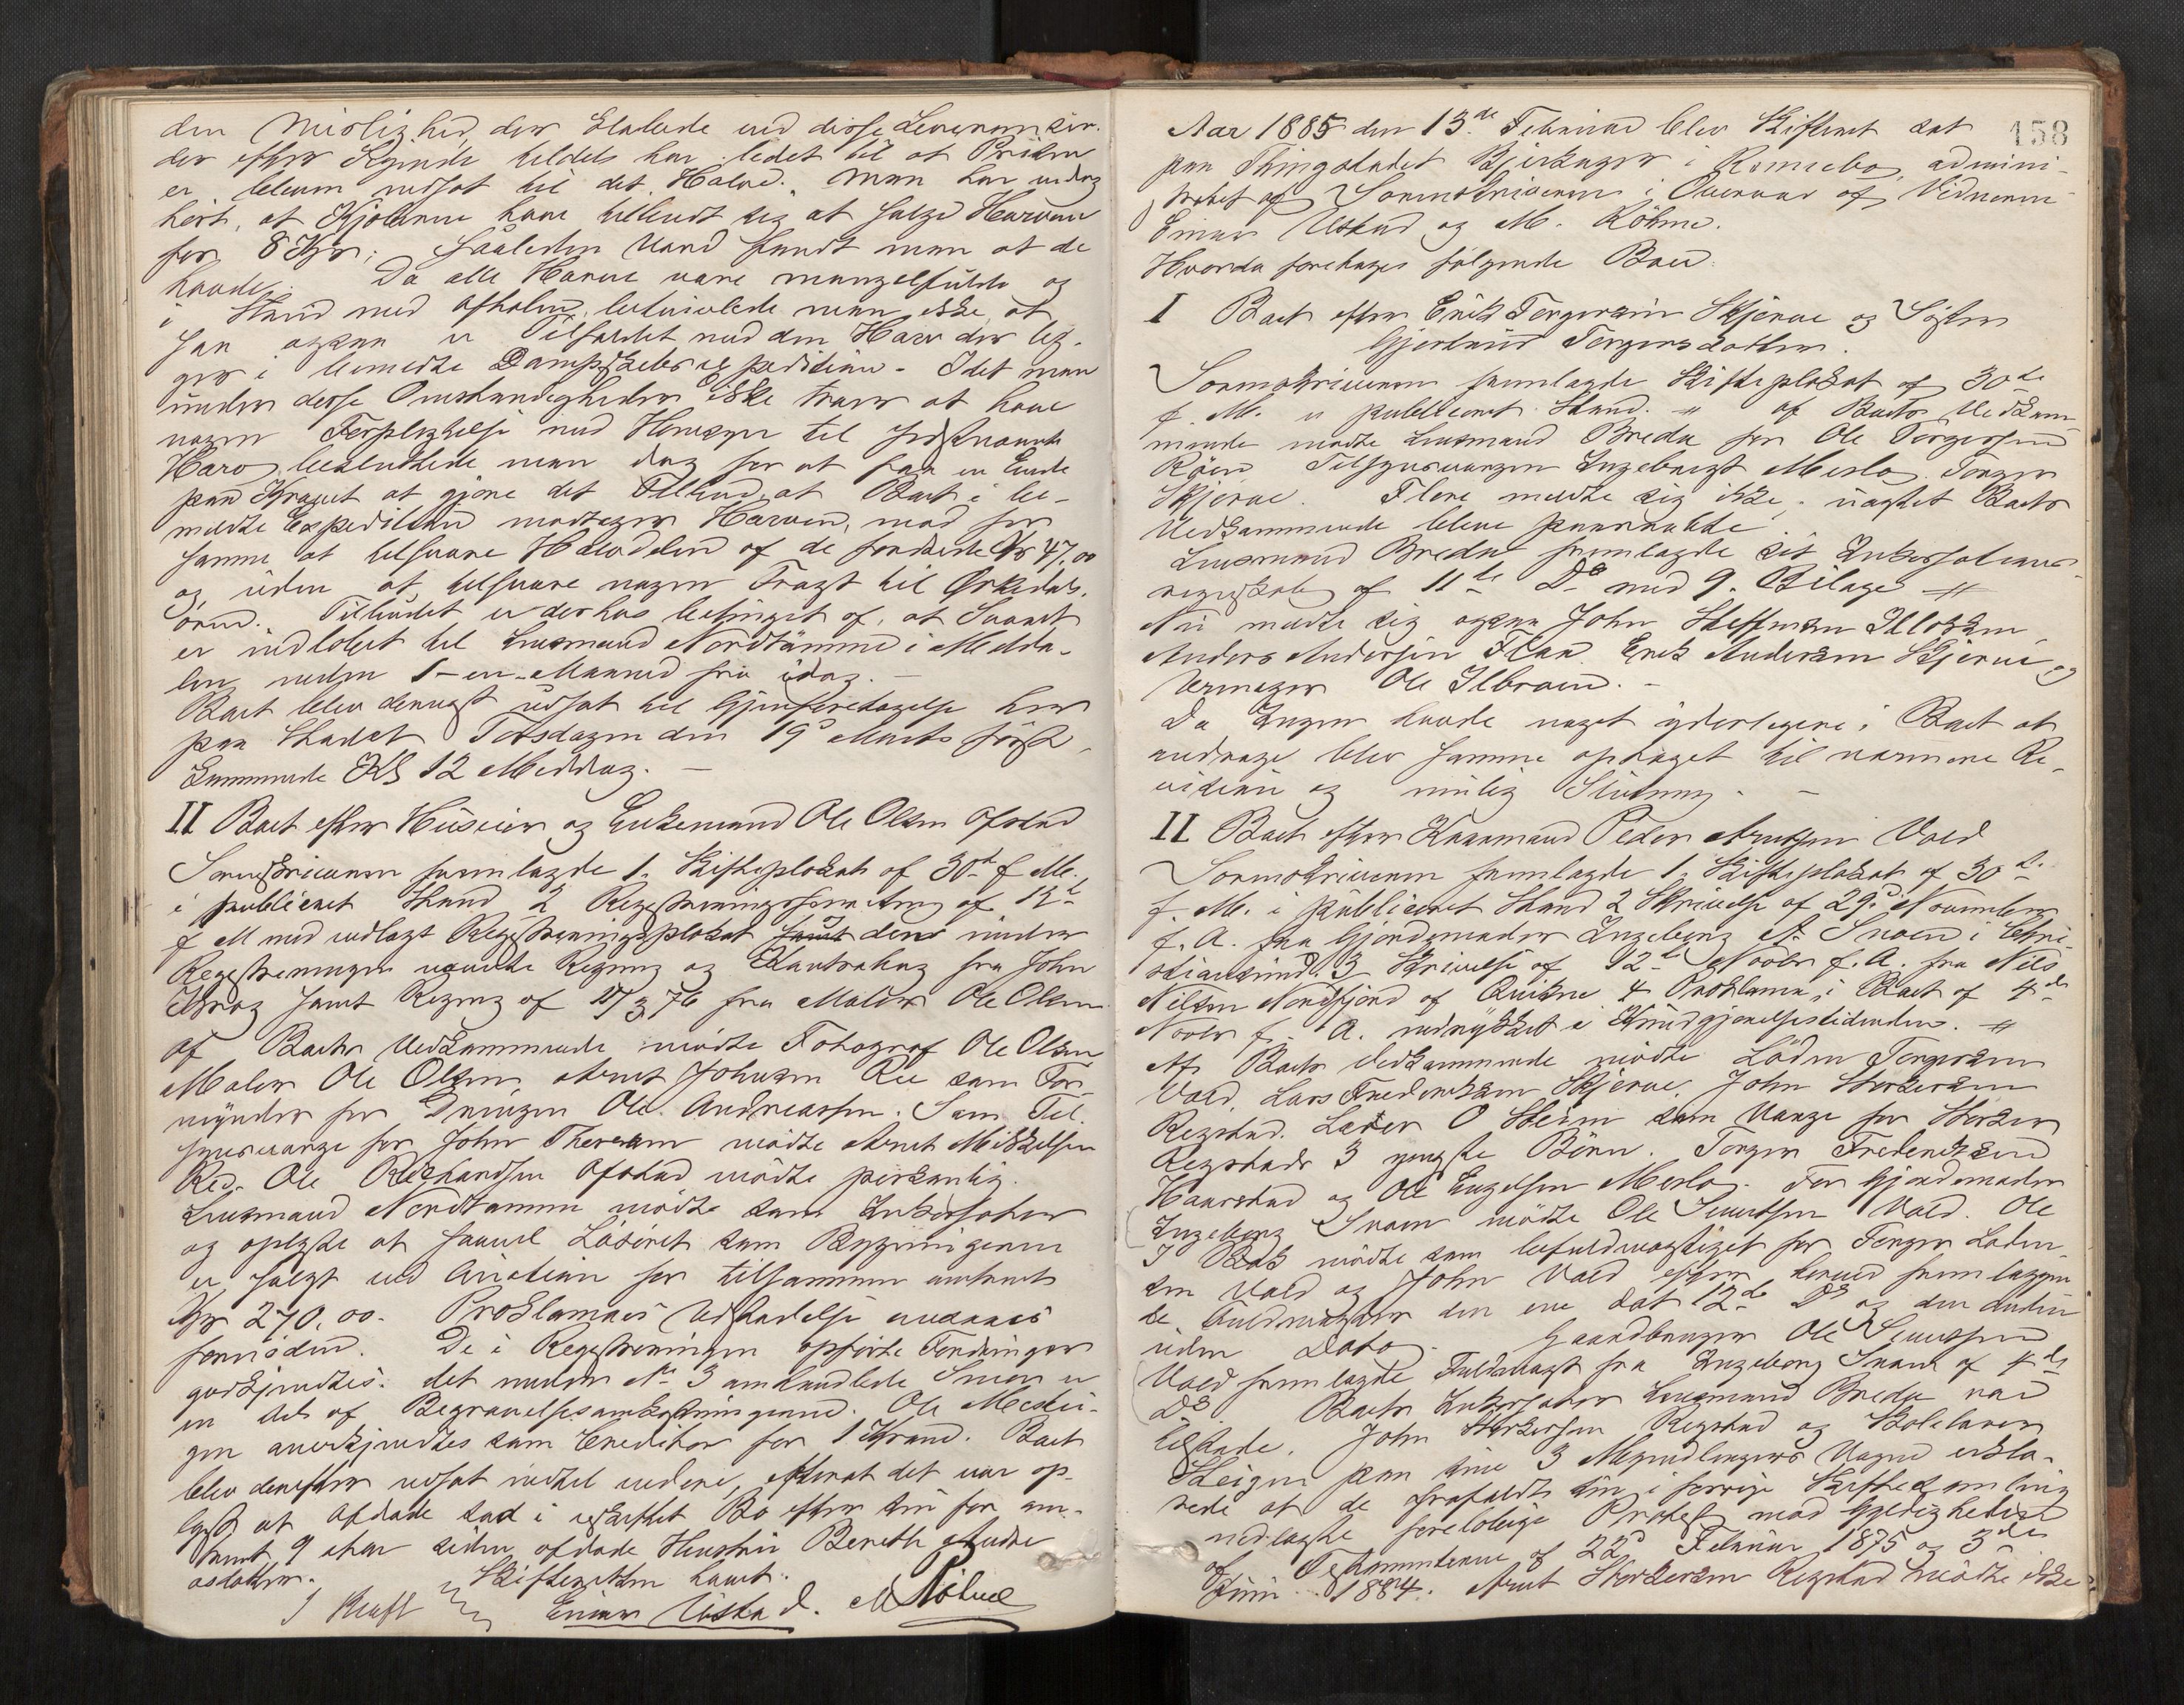 den Mislighed, der klæbede ved disse Leverancer.
der efter Sigende tildels har ledet til at Prisen
er bleven nedsat til det Halve. Man har endog
hört, at Kjöberne have tilbudt sig at sælge Harven
for 8 Kr; saaledes Værd fandt man at de
havde. Da alle Harve vare mangelfulde og
i Strid med Aftalen, betvivlede man ikke, at
saa ogsaa er Tilfældet med den Harv der lig-
ger i bemeldte Dampskibsexpedition. Idet man
under disse Omstændigheder ikke troer at have
nogen Forpligtelse med Hensyn til sidstnævnte
Harv, besluttede man dog for at faa en Ende
paa Kravet at gjöre det Tilbud, at Boet i be-
meldte Expedition modtager Harven, mod for
samme at tilsvare Halvdelen af de fordrede Kr 47,00
og uden at tilsvare nogen Fragt til Orkedals-
ören. Tilbudet er derhos betinget af, at Svaret
er indlöbet til Lensmand Nordtömme i Melda-
len inden 1-en-Maaned fra idag. -
Boet blev dernæst udsat til Gjenforetagelse her
paa Stedet Torsdagen den 19de Marts först-
kommende Kl 12 Middag. -
II Boet efter Huseier og Enkemand Ole Olsen Ofstad
Sorenskriveren fremlagde 1. Skifteplakat af 30te f. M.
i publiceret Stand 2 Registreringsforretning af 13de
f M med vedlagt Registreringsplakat samt den under
Registreringen nævnte Regning og Kontrabog fra John
Krog samt Regning af 11/3 76 fra Maler Ole Olsen
Af Boets Vedkommende mödte Fotograf Ole Olsen
Maler Ole Olsen, Arnt Johnsen Ree som For-
mynder for Drengen Ole Andreassen. Som Til-
synsværge for John Thoresen mödte Arnt Mikkelsen
Ree. Ole Rikhardsen Ofstad mödte personlig.
Lensmand Nordtömme mödte som Inkassator
og oplyste at saavel Lösöret som Bygningerne
er solgt ved Auktion for tilsammen omtrent
Kr 270,00. Proklamas Udstedelse ansaaes
fornöden. De i Registreringen opförte Fordringer
godkjendtes. det under No 3 omhandlede Smör er
en Del af Begravelsesomkostningerne. Ole Mestu-
gen anerkjendtes som Creditor for 1 Krone. Boet
blev derefter udsat indtil videre, efterat det var op-
lyst, at Afdöde sad i uskiftet Bo efter sin for om-
trent 9 Aar siden afdöde Hustru Bereth Anders-
datter. Skifteretten hævet.
J Kraft Einar Ustad. M Röhme
158
Aar 1885 den 13de Februar blev Skifteret sat
paa Thingstedet Bjerkager i Rennebo, admini-
streret af Sorenskriveren i Overvær af Vidnerne
Einar Ustad og M. Röhme.
Hvorda foretoges fölgende Boer:
I Boet efter Erik Torgersen Skjerve og Söster
Gjertrud Torgersdatter.
Sorenskriveren fremlagde Skifteplakat af 30te
f. M. i publiceret Stand. - Af Boets Vedkom-
mende mödte Lensmand Bredu for Ole Torgersen
Röen, Tilsynsværgen Ingebrigt Merslo, Torger
Skjerve. Flere meldte sig ikke, uagtet Boets
Vedkommende bleve paaraabte.
Lensmand Bredu fremlagde sit Inkassations-
regnskab af 11te Ds med 9. Bilage -
Nu meldte sig ogsaa John Steffensen Illokken
Anders Andersen Flaa Erik Andersen Skjerve og
Værmager Ole Ilbroen. -
Da Ingen havde noget yderligere i Boet at
andrage blev samme optaget til nærmere Re-
vision og mulig Slutning. -
II Boet efter Kaarmand Peder Arntsen Vold
Sorenskriveren fremlagde 1. Skifteplakat af 30te
f. M. i publiceret Stand 2 Skrivelse af 29de November
f. A. fra Gjordemoder Ingeborg A. Snoen i Chri-
stiansund. 3 Skrivelse af 12te Novbr f. A. fra Nils
Nilsen Nordfjord af Qvikne 4 Proklama i Boet af 4de
Novbr f. A. indrykket i Kundgjörelsestidenden. -
Af Boets Vedkommende mödte Loden Torgersen
Vold, Lars Fredriksen Skjerve, John Storkersen
Regstad. Lærer O Steien som Værge for Storker
Regstads 3 yngste Börn. Torger Fredriksen
Haarstad og Ole Engelsen Merslo. For Gjordemoder
Ingeborg Snoen mödte Ole Sivertsen Vold. Ole
J Bak mödte som befuldmægtiget for Torger Loden-
sen Vold og John Vold efter herved fremlagte
to Fuldmagter den ene dat 12te Ds og den anden
uden Dato. Gaardbruger Ole Sivertsen
Vold fremlagde Fuldmagt fra Ingeborg Snoen af 4de
Ds. Boets Inkassator Lensmand Bredu var
tilstede. John Storkersen Regstad og Skolelærer
Steien paa sine 3 Myndlingers Vegne erklæ-
rede at de frafaldt sin i forrige Skiftesamling
nedlagte foreløbige Protest mod Gyldigheden
af Testamenterne af 22de Februar 1875 og 3die
Juni 1884. Arnt Storkersen Regstad mödte ikke